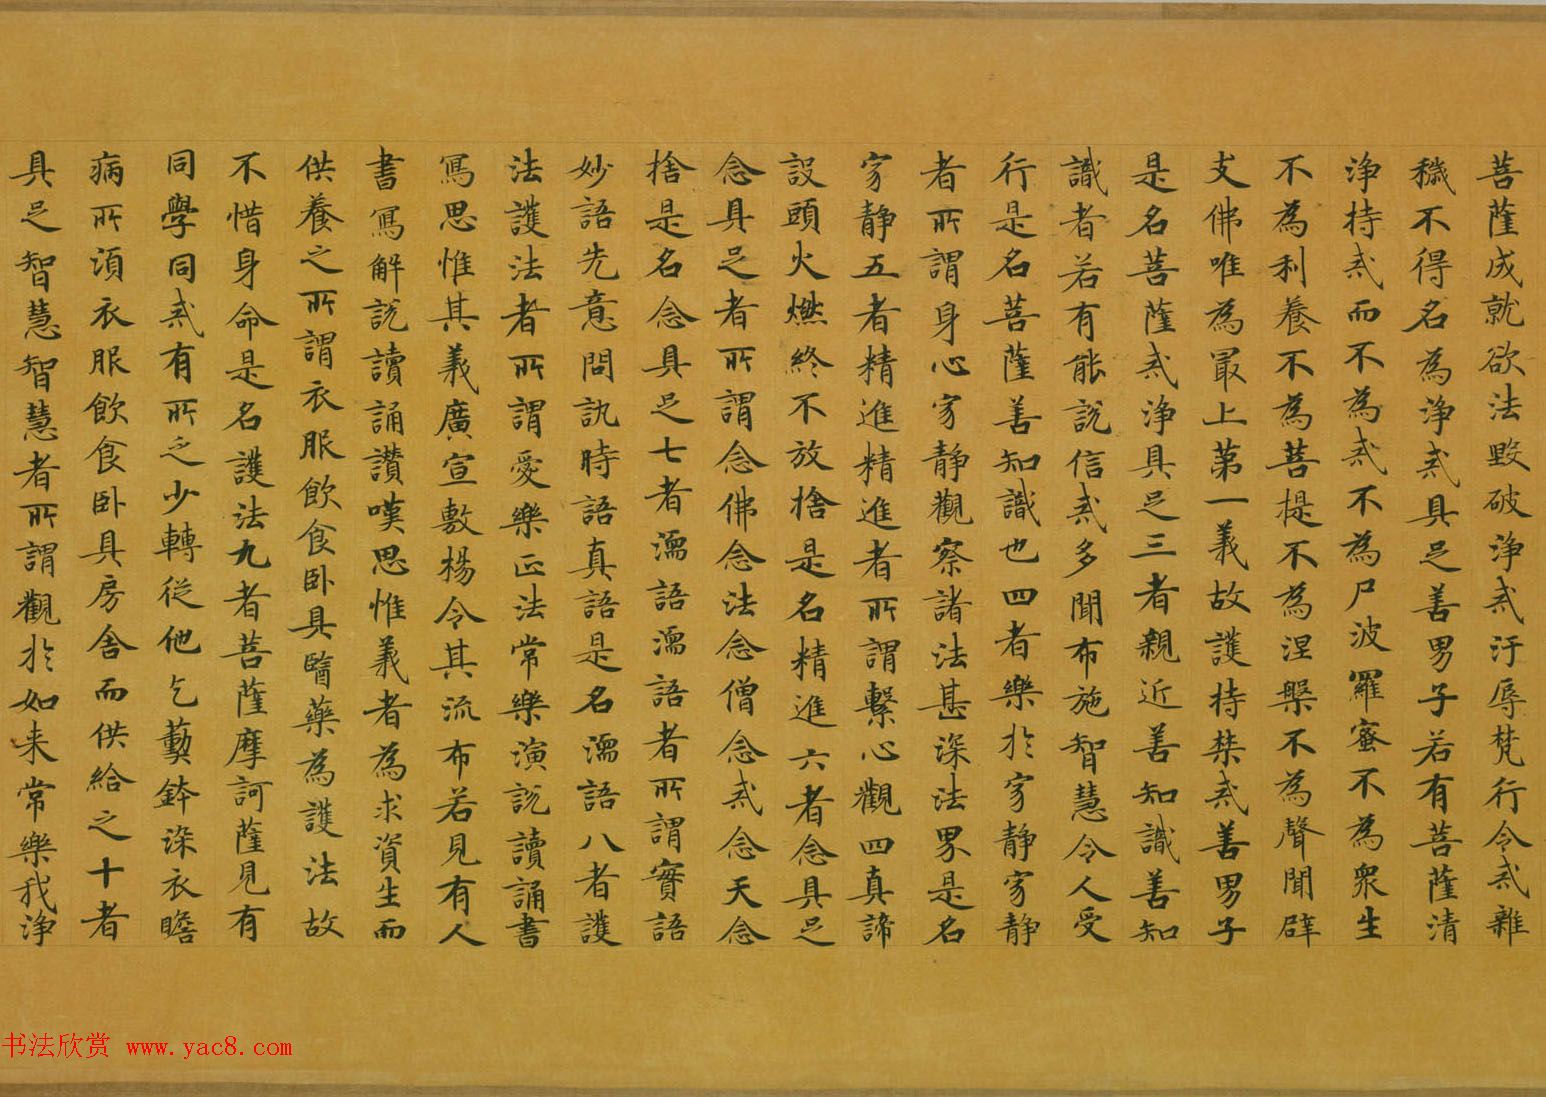 菩薩成就欲法毀破淨戒汙辱梵行令戒雜
穢不得名為淨戒具足善男子若有菩薩清
淨持戒而不為戒不為尸波羅蜜不為眾生
不為利養不為菩提不為涅槃不為聲聞辟
支佛唯為最上第一義故護持禁戒善男子
是名菩薩戒淨具足三者親近善知識善知
識者若有能說信戒多聞布施智慧令人受
行是名菩薩善知識也四者樂於寂靜寂靜
者所謂身心寂靜觀察諸法甚深法界是名
寂靜五者精進精進者所謂繫心觀四真諦
設頭火燃終不放捨是名精進六者念具足
念具足者所謂念佛念法念僧念戒念天念
捨是名念具足七者濡語濡語者所謂實語
妙語先意問訊時語真語是名濡語八者護
法護法者所謂愛樂正法常樂演說讀誦書
寫思惟其義廣宣敷揚令其流布若見有人
書寫解說讀誦讚嘆思惟義者為求資生而
供養之所謂衣服飲食卧具醫藥為護法故
不惜身命是名護法九者菩薩摩訶薩見有
同學同戒有所乏少轉從他乞薰鉢染衣瞻
病所須衣服飲食卧具房舍而供給之十者
具足智慧智慧者所謂觀於如来常樂我淨
书法欣赏 www.yac8.com